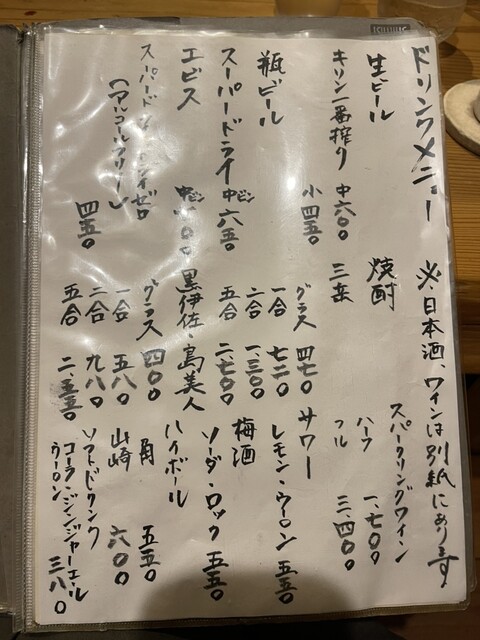 ドリンクメニュー ※日本酒、ワインは別紙にあります
生ビール
キリン一番搾り 中 六〇〇
小 四五〇
瓶ビール
スーパードライ 中ビン 六五〇
エビス 中ビン 〇〇
スパードライゼロ
(アルコールフリー)
四五〇
焼酎
三岳
グラス 四七〇
一合 七二〇
二合 一、三〇〇
五合 二、七〇〇
黒伊佐・島美人
グラス 四〇〇
一合 五八〇
二合 九八〇
五合 二、五五〇
スパークリングワイン
ハーフ 一、七〇〇
フル 三、四〇〇
サワー
レモン・ウーロン 五五〇
梅酒
ソーダ・ロック 五五〇
ハイボール
角 五五〇
山崎 六〇〇
ソフトドリンク
コーラ・ジンジャーエール
ウーロン 三八〇